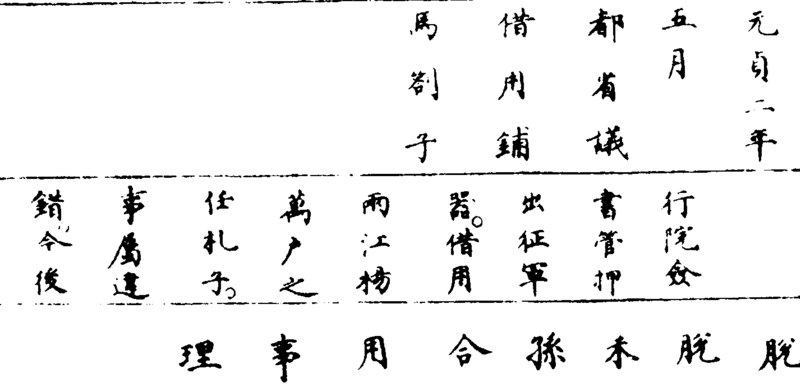 元貞二年
五月
都省議
借用鋪
馬劄子
行院僉
書管押
出征軍
器。借用
兩江楊
萬户之
任札子
事屬違
錯今後
脫脫禾孫合用事理